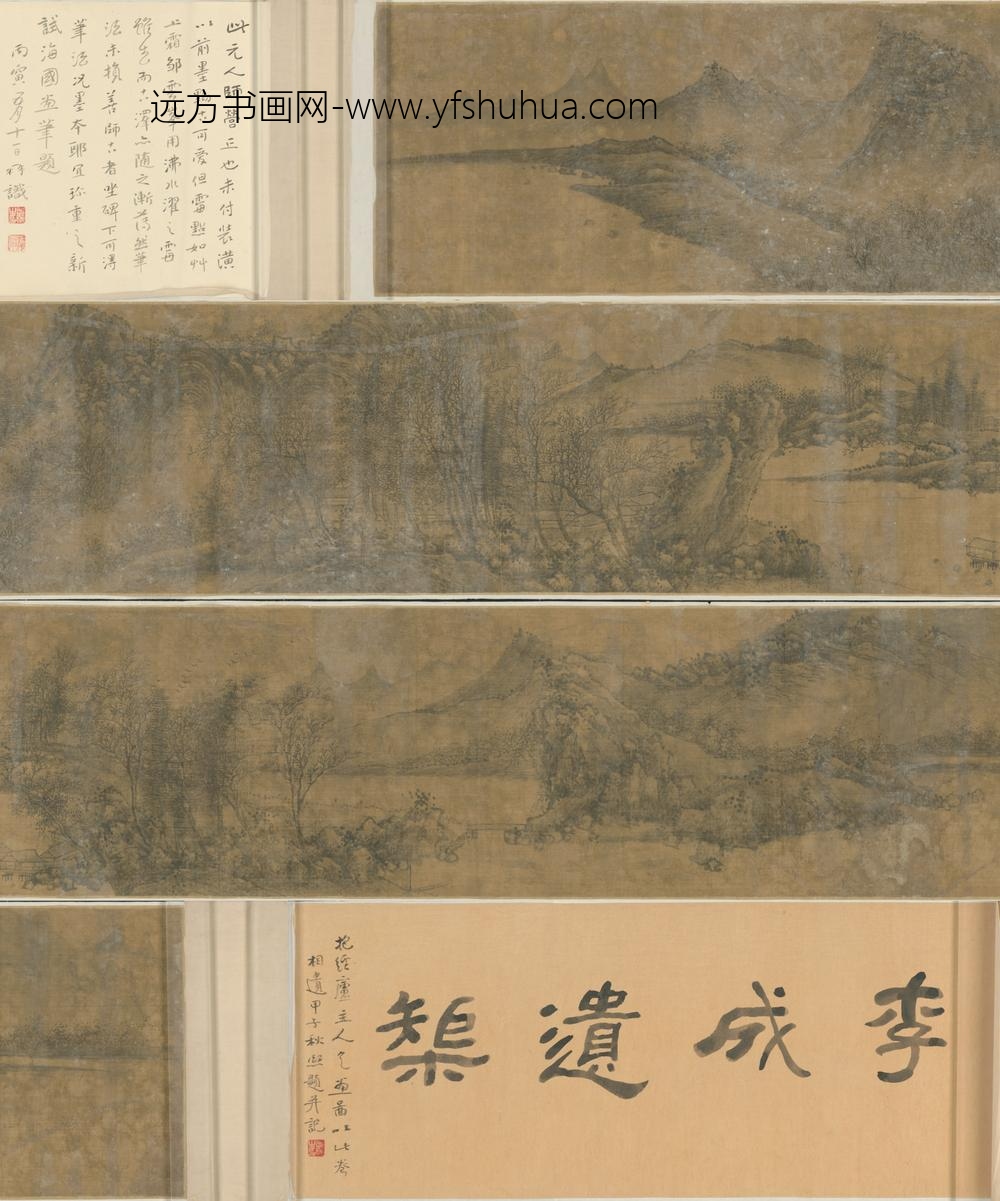 此元人師營丘也未付裝潢
以前墨
可愛但雪點如艸
上霜鄒
用沸水濯之雪
雖去而
澤亦隨之漸薄然筆
法未損善師古者坐碑下可得
筆法況墨本耶宜珍重之新
試海國畫筆題
丙寅
十一日
識
远方书画网-www.yfshuhua.com
李成遺榘
抱經廬主人乞畫留以此卷
相遺甲子秋熙題并記